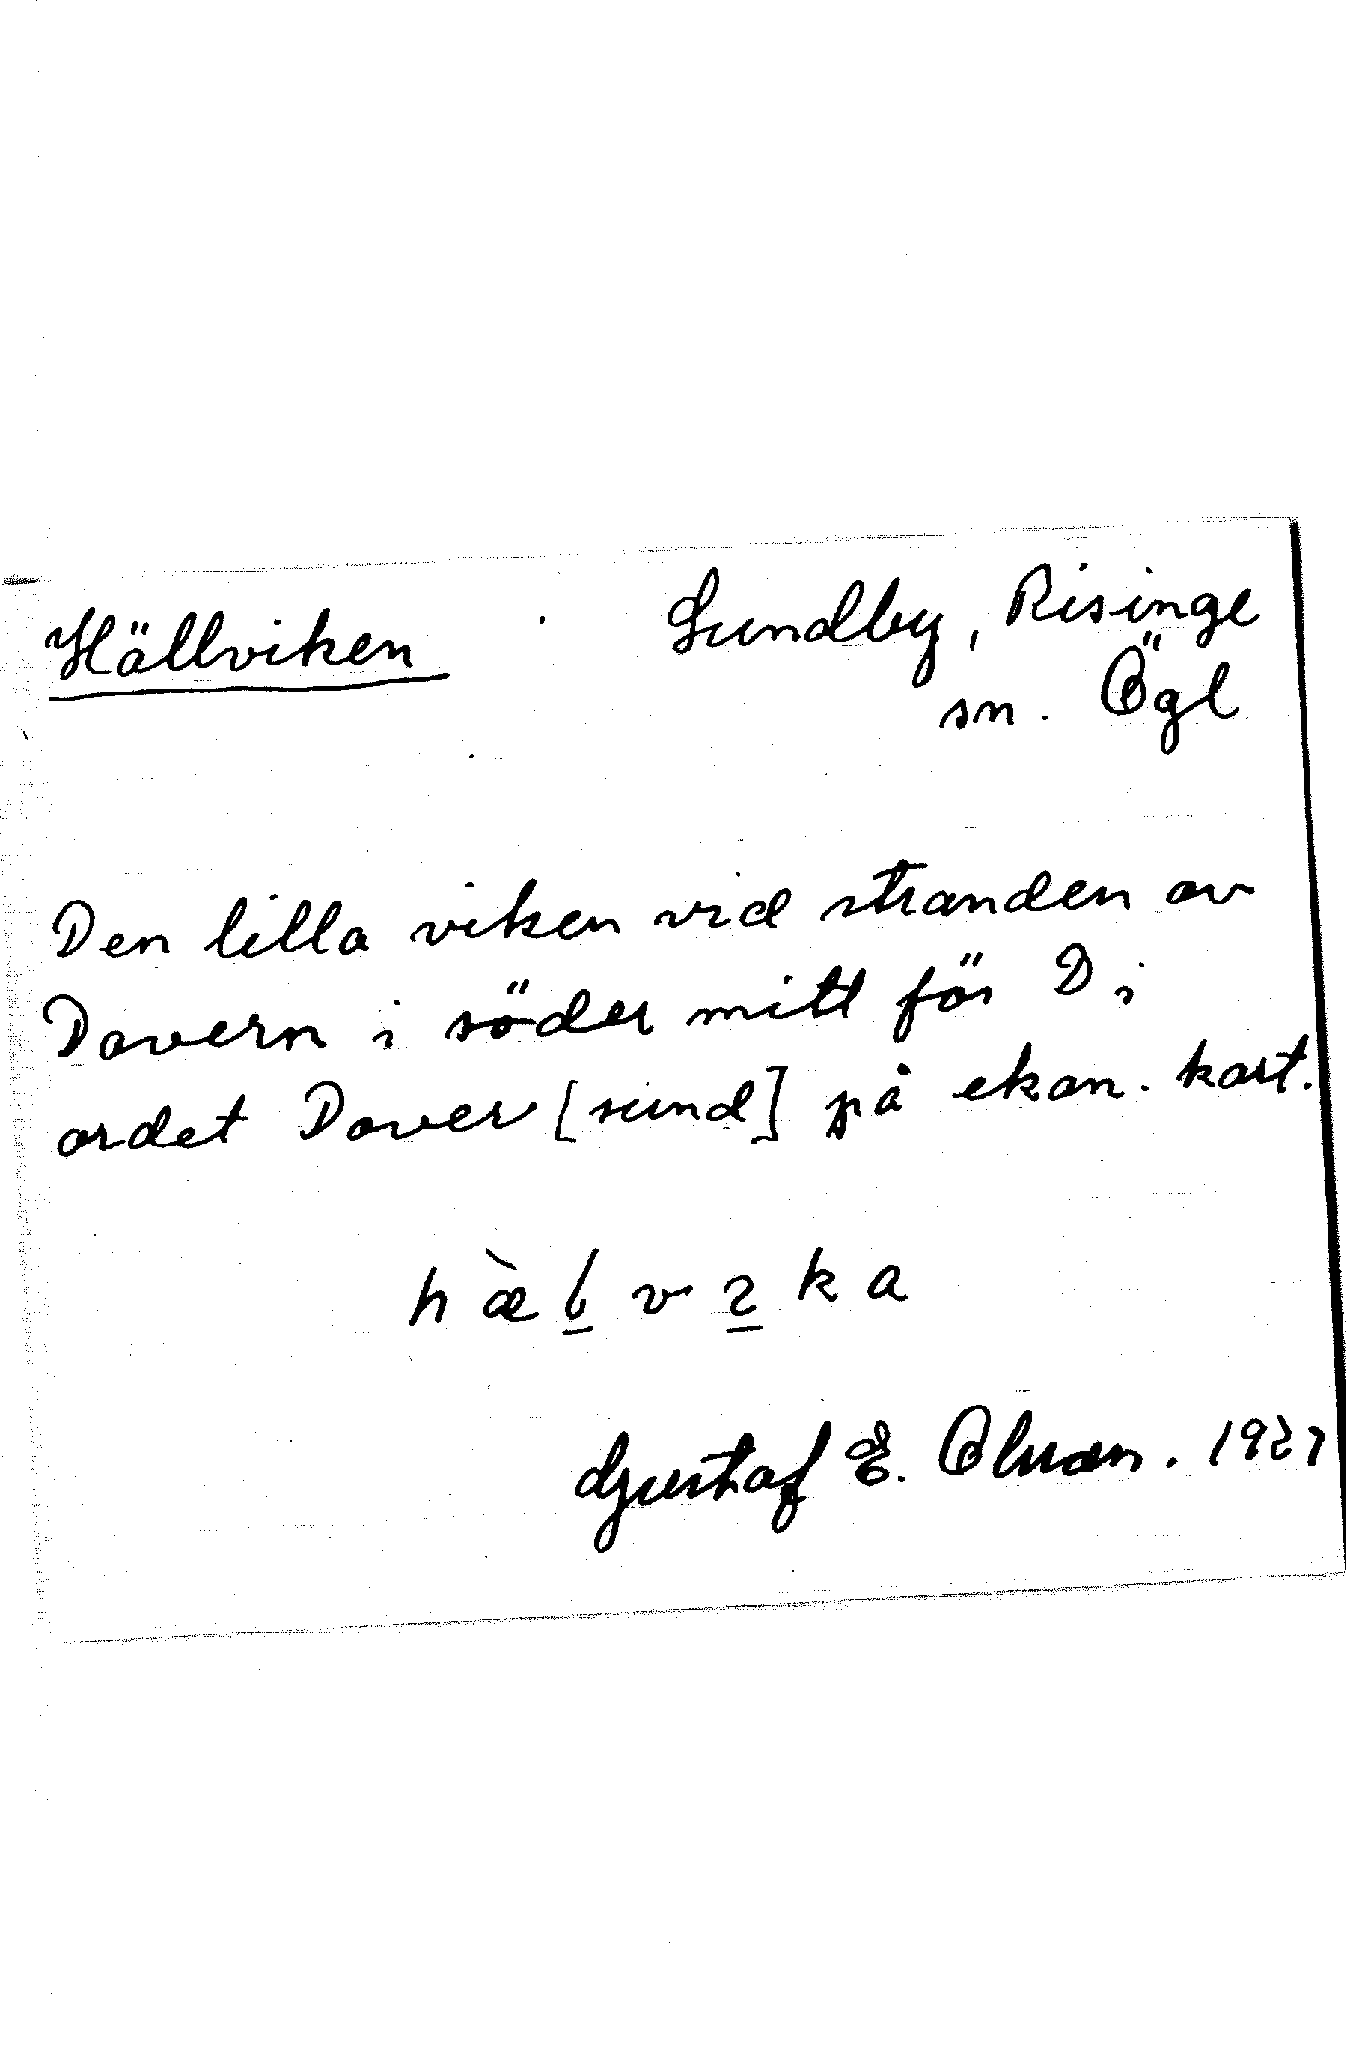 Hällviken Sundby, Risinge
sn. Ögl
Den lilla viken vid stranden av
Dovern i söder mitt för D i
ordet Dover [sund] på ekon. kart.
Gustaf E. Olwæn. 1927